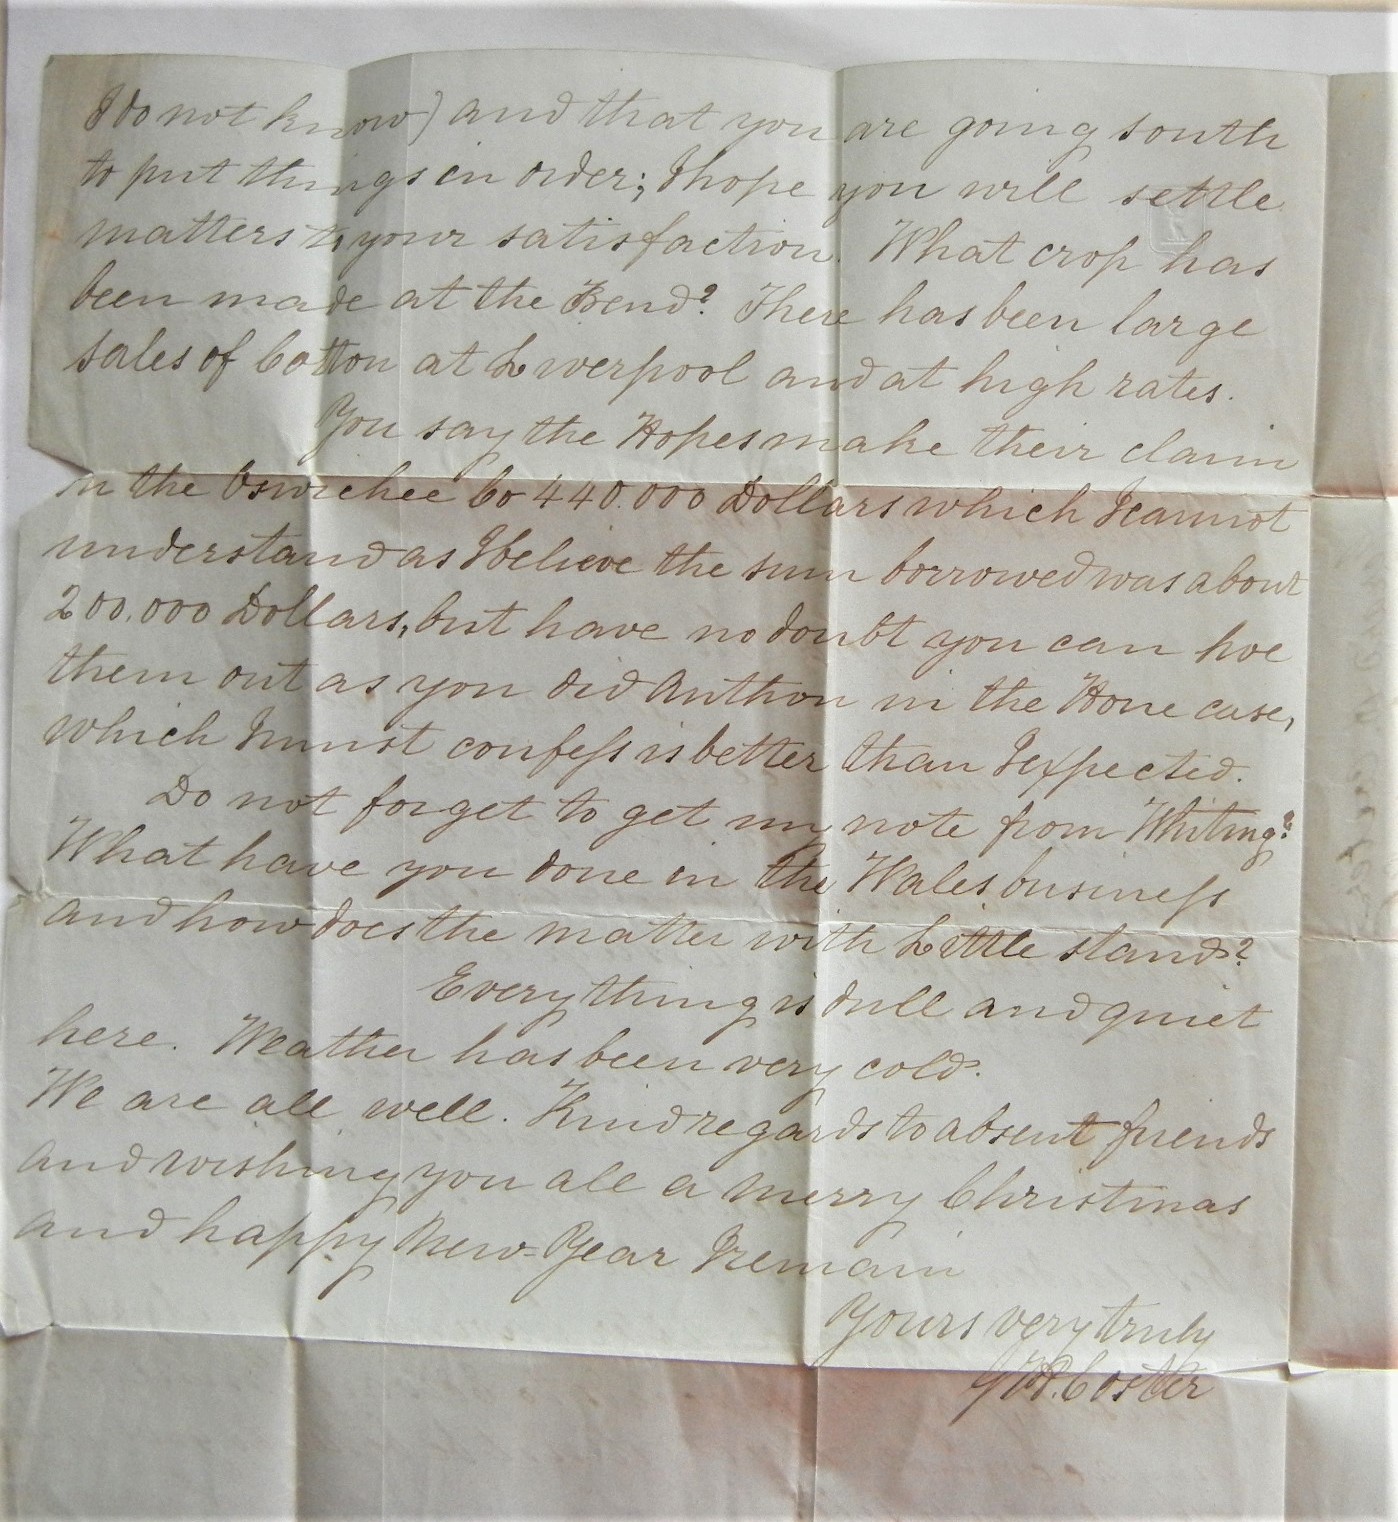 I do not know) and that you are going south
to put things in order; I hope you will settle
matters to your satisfaction. What crop has
been made at the Bend? There has been large
sales of Cotton at Liverpool and at high rates.
You say the Hopes make their claim
in the Oswichee Co 440.000 Dollars which I cannot
understand as I believe the sum borrowed was about
200.000 Dollars, but have no doubt you can hoe
them out as you did Anthon in the Hone case,
which I must confess is better than I expected.
Do not forget to get my note from Whiting?
What have you done in the Wales business
and how does the matter with Little stand?
Everything is dull and quiet
here. Weather has been very cold.
We are all well. Kind regards to absent friends
and wishing you all a merry Christmas
and happy New-Year I remain
Yours very truly
Coster